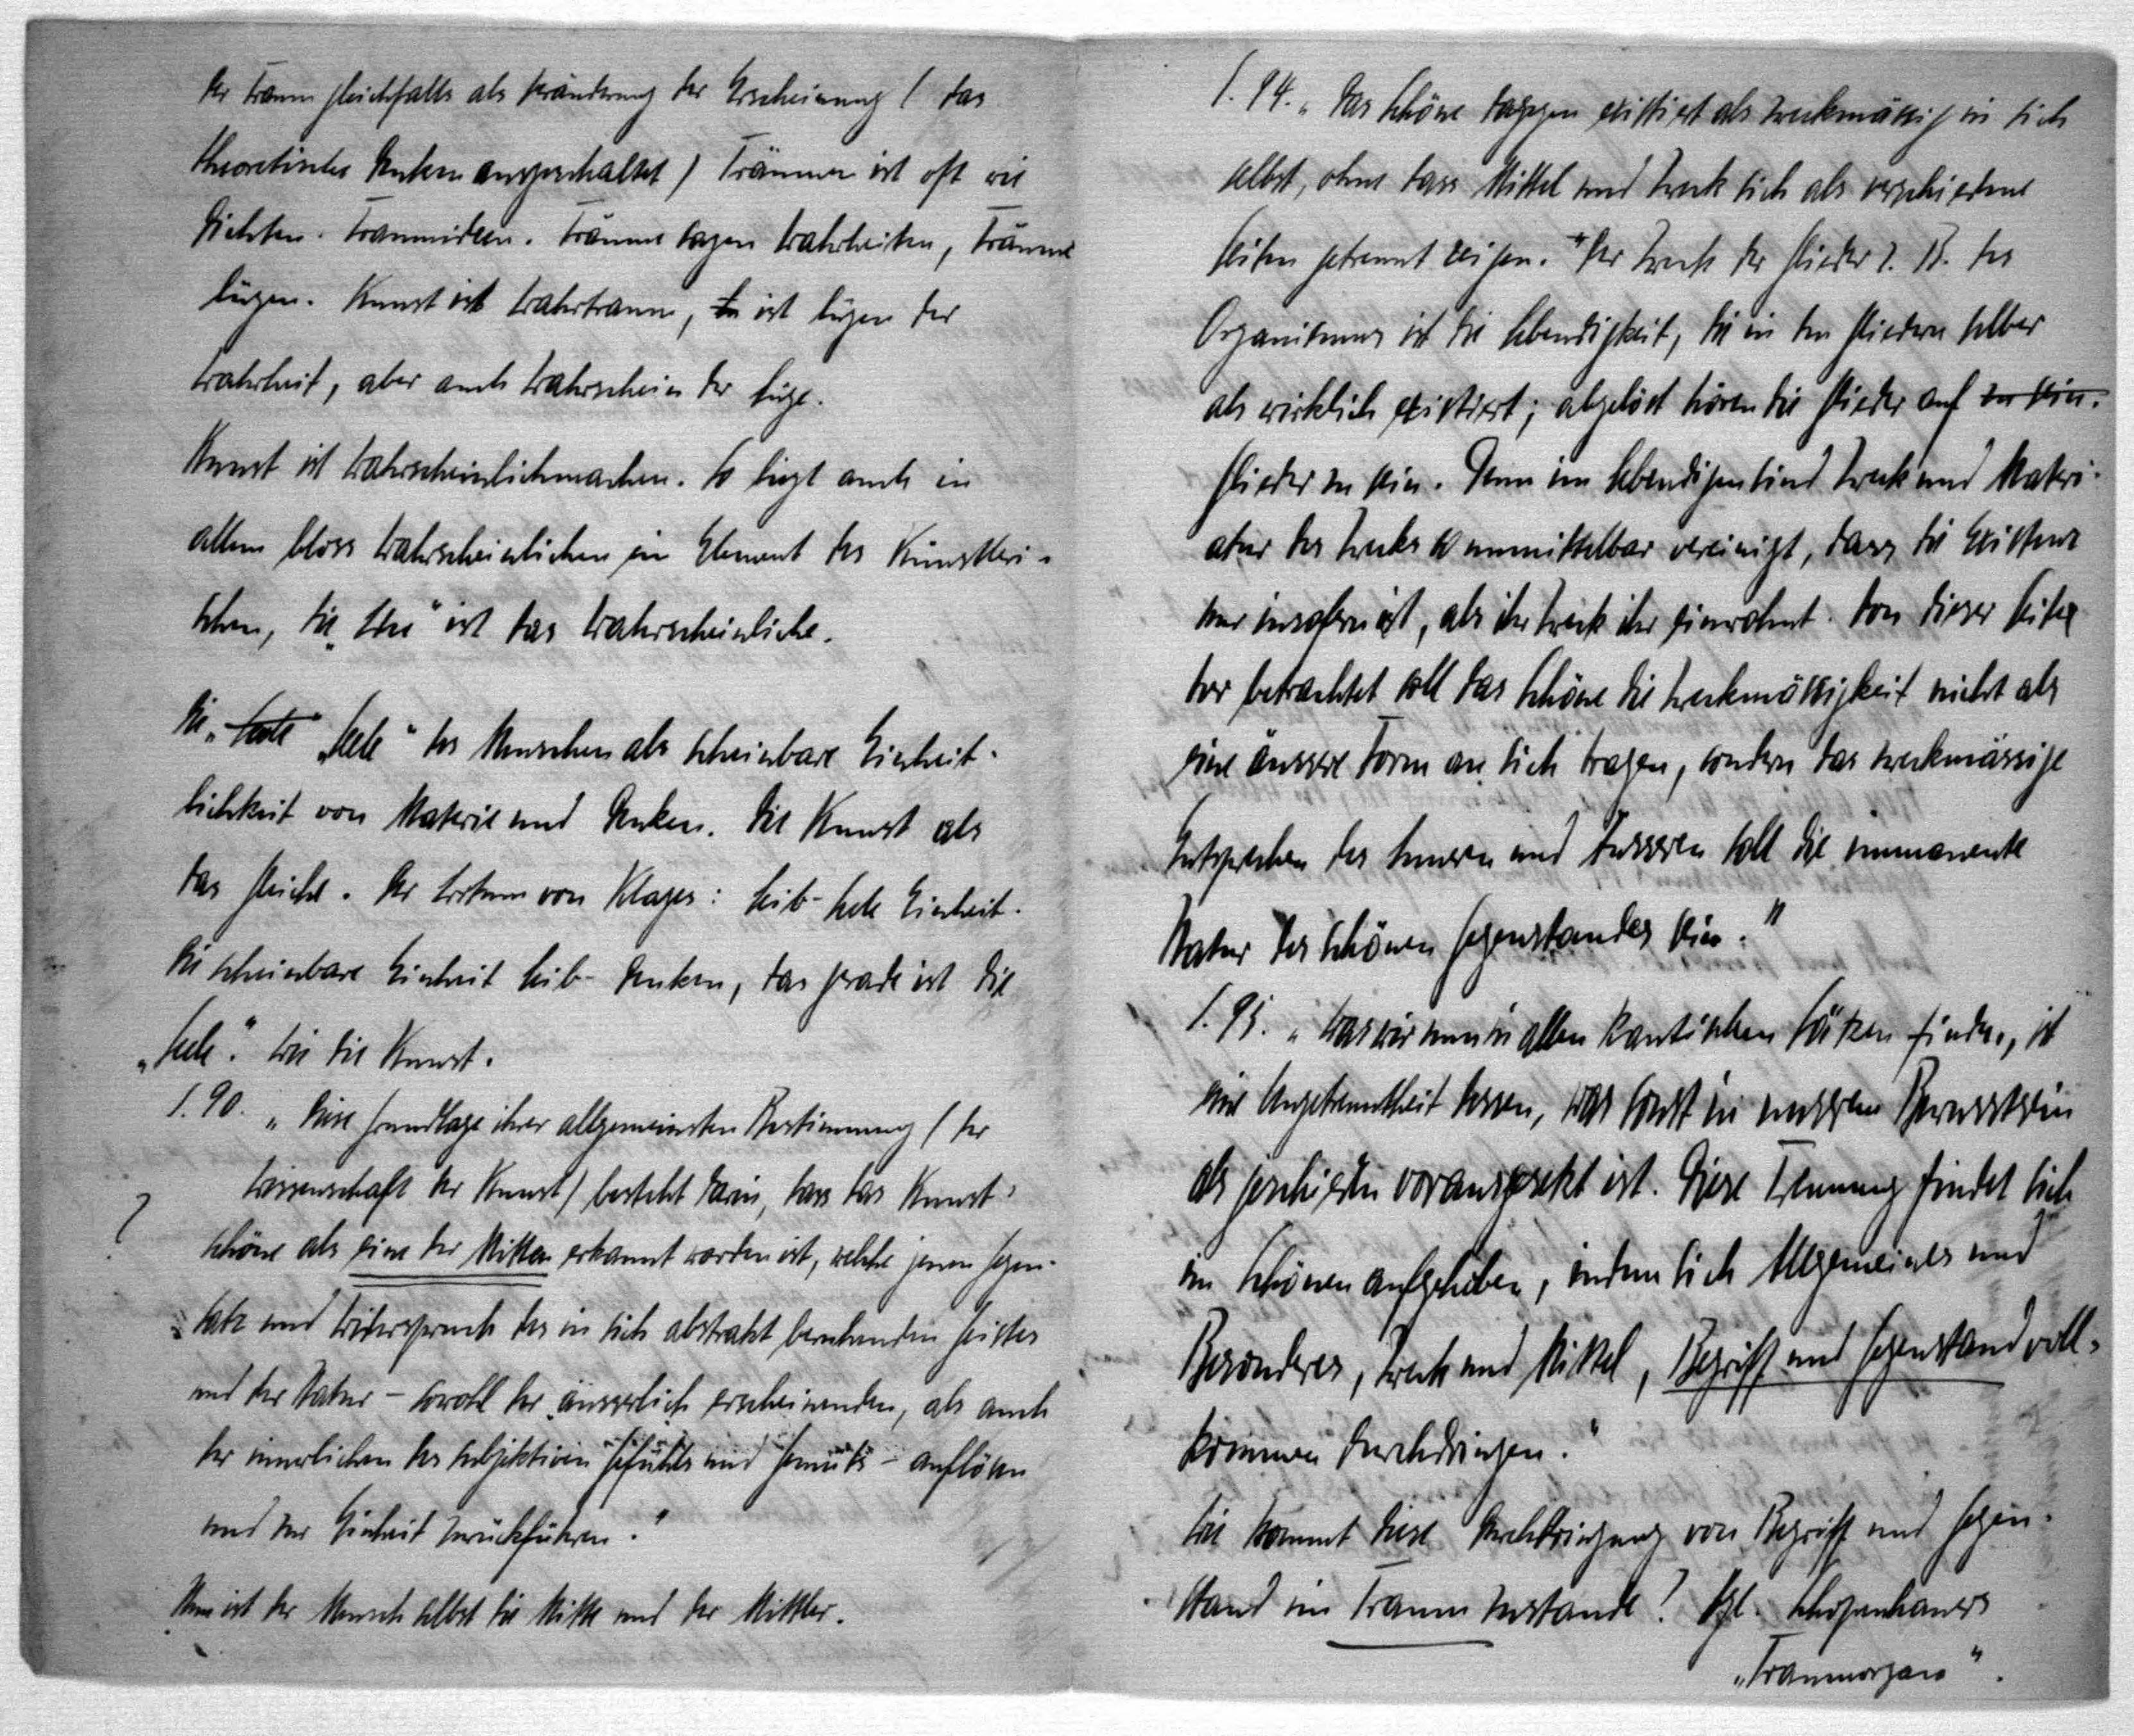 der Traum gleichfalls als Veränderung der Erscheinung ( das
theoretische Denken ausgeschaltet ) Träumen ist oft wie
Dichten. Traumideen. Träume sagen Wahrheiten, Träume
lügen. Kunst ist Wahrtraum, ist lügen der
Wahrheit, aber auch Wahrschein der Lüge.
Kunst ist Wahrscheinlichmachen. So liegt auch in
allem bloss Wahrscheinlichen ein Element des Künstleri-
schen, die „Idee“ ist das Wahrscheinliche.
Die „Seele“ des Menschen als scheinbare Einheit-
lichkeit von Materie und Denken. Die Kunst als
das Gleiche. Der Irrtum von Klages: Leib-Seele Einheit.
Die scheinbare Einheit Leib-Denken, das grade ist die
„Seele“. Wie die Kunst.
S. 90. „Diese Grundlage ihrer allgemeinsten Bestimmung ( der
Wissenschaft der Kunst) besteht darin, dass das Kunst-
? schöne als eine der Mitten erkannt worden ist, welche jenen Gegen-
satz und Widerspruch des in sich abstrakt beruhenden Geistes
und der Natur – sowohl der äusserlich erscheinenden, als auch
der innerlichen des subjektiven Gefühls und Gemüts – auflösen
und zur Einheit zurückführen.“
Nun ist der Mensch selbst die Mitte und der Mittler.
S. 94. „Das Schöne dagegen existiert als zweckmässig in sich
selbst, ohne dass Mittel und Zweck sich als verschiedene
Seiten getrennt zeigen. Der Zweck der Glieder z. B. des
Organismus ist die Lebendigkeit, die in den Gliedern selber
als wirklich existiert; abgelöst hören die Glieder auf zu sein.
Glieder zu sein. Denn im Lebendigen sind Zweck und Materi-
atur des Zwecks so unmittelbar vereinigt, dass die Existenz
nur insofern ist, als ihr Zweck ihr einwohnt. Von dieser Seite
her betrachtet soll das Schöne die Zweckmässigkeit nicht als
eine äussere Form an sich tragen, sondern das zweckmässige
Entsprechen des Inneren und Äusseren soll die immanente
Natur des schönen Gegenstandes sein.“
S. 95. „Was wir nun in allen Kantischen Sätzen finden, ist
eine Ungetrenntheit dessen, was sonst in unserem Bewusstsein
als geschieden vorausgesetzt ist. Diese Trennung findet sich
im Schönen aufgehoben, indem sich Allgemeines und
Besonderes, Zweck und Mittel, Begriff und Gegenstand voll-
kommen durchdringen.“
Wie kommt diese Durchdringung von Begriff und Gegen-
stand im Traum zustande? Vgl. Schopenhauers
„Traumorgan“.